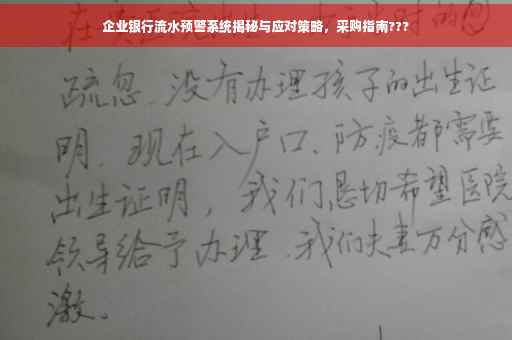 企业银行流水预警系统揭秘与应对策略，采购指南???
疏忽.没有办理孩子的出生证
明.现在入户口、防疫都需要
出生证明，我们恳切希望医院
领导给予办理.我们夫妻万分感
激。